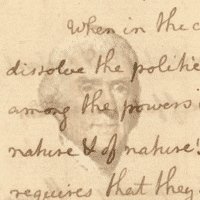 When in the c
dissolve the politic
among the powers
nature & of nature's
requires that they